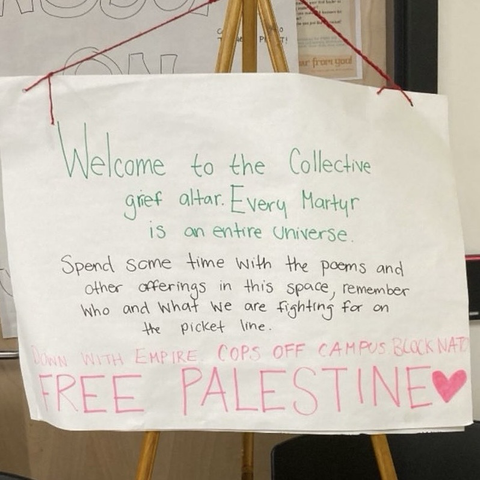 Welcome to the Collective
grief altar. Every Martyr
is an entire Universe.
Spend some time with the poems and
other offerings in this space, remember
who and what we are fighting for on
the picket line.
DOWN WITH EMPIRE. COPS OFF CAMPUS. BLOCK NATO
FREE PALESTINE